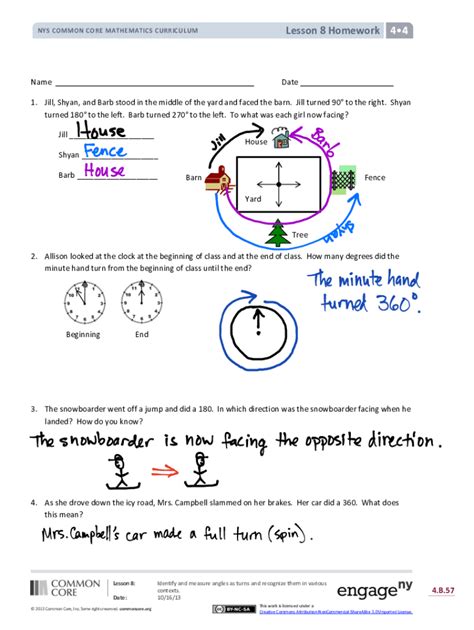 NYS COMMON CORE MATHEMATICS CURRICULUM Lesson 8 Homework 4•4
Name Date
1. Jill, Shyan, and Barb stood in the middle of the yard and faced the barn. Jill turned 90° to the right. Shyan
turned 180° to the left. Barb turned 270° to the left. To what was each girl now facing?
Jill House
Shyan Fence
Barb House
Jill
House
Barb
Barn
Fence
Yard
Shyan
Tree
2. Allison looked at the clock at the beginning of class and at the end of class. How many degrees did the
minute hand turn from the beginning of class until the end?
The minute hand
turned 360°.
Beginning End
3. The snowboarder went off a jump and did a 180. In which direction was the snowboarder facing when he
landed? How do you know?
The snowboarder is now facing the opposite direction.
4. As she drove down the icy road, Mrs. Campbell slammed on her brakes. Her car did a 360. What does
this mean?
Mrs. Campbell's car made a full turn (spin).
COMMON
CORE
Lesson 8:
Date:
Identify and measure angles as turns and recognize them in various
contexts.
10/16/13
engage ny
4.B.57
© 2013 Common Core, Inc. Some rights reserved. commoncore.org
BY-NC-SA
This work is licensed under a
Creative Commons Attribution-NonCommercial-ShareAlike 3.0 Unported License.